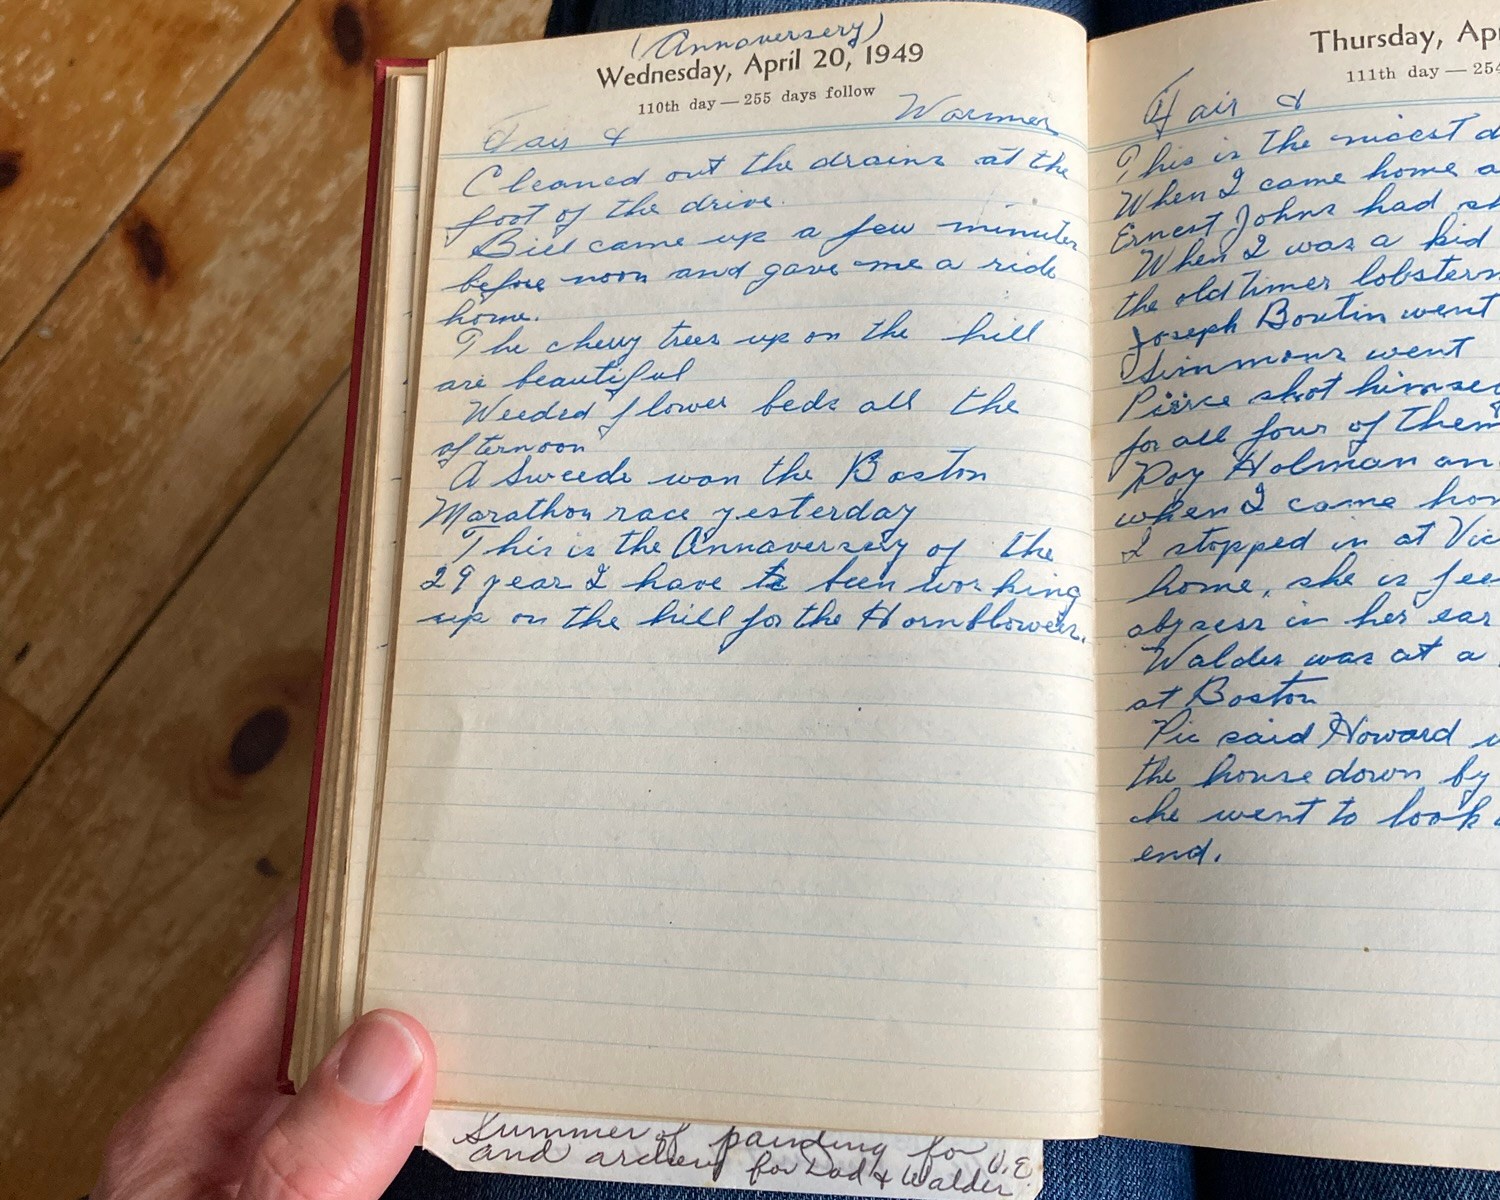 (Annaversery)
Wednesday, April 20, 1949
110th day — 255 days follow
Fair & Warmer
Cleaned out the drains at the
foot of the drive.
Bill came up a few minutes
before noon and gave me a ride
home.
The cherry trees up on the hill
are beautiful
Weeded flower beds all the
afternoon
A Sweede won the Boston
Marathon race yesterday
This is the Annaversery of the
29 year I have been working
up on the hill for the Hornblowers.
Summer of painding for V.E.
and ardew for Dad & Walder
Thursday, Apr
111th day — 254
Fair &
This is the nicest d
When I came home a
Ernest Johns had sh
When I was a kid
the old timer lobsterm
Joseph Boutin went
Simmons went
Pierce shot himsel
for all four of them
Roy Holman an
when I came hom
I stopped in at Vic
home, she is fee
absess in her ear
Walder was at a
at Boston
Vic said Howard w
the house down by
he went to look a
end.